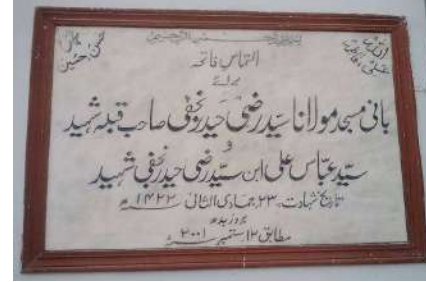 بسم اللہ الرحمن الرحیم
التماس فاتحہ
برائے
بانی مسجد مولانا سید رضی حیدر نجفی صاحب قبلہ شہید
و
سید عباس علی ابن سید رضی حیدر نجفی شہید
تاریخ شہادت ۲۳ جمادی الثانی ۱۴۲۲ھ
بروز بدھ
مطابق ۱۲ ستمبر ۲۰۰۱ء